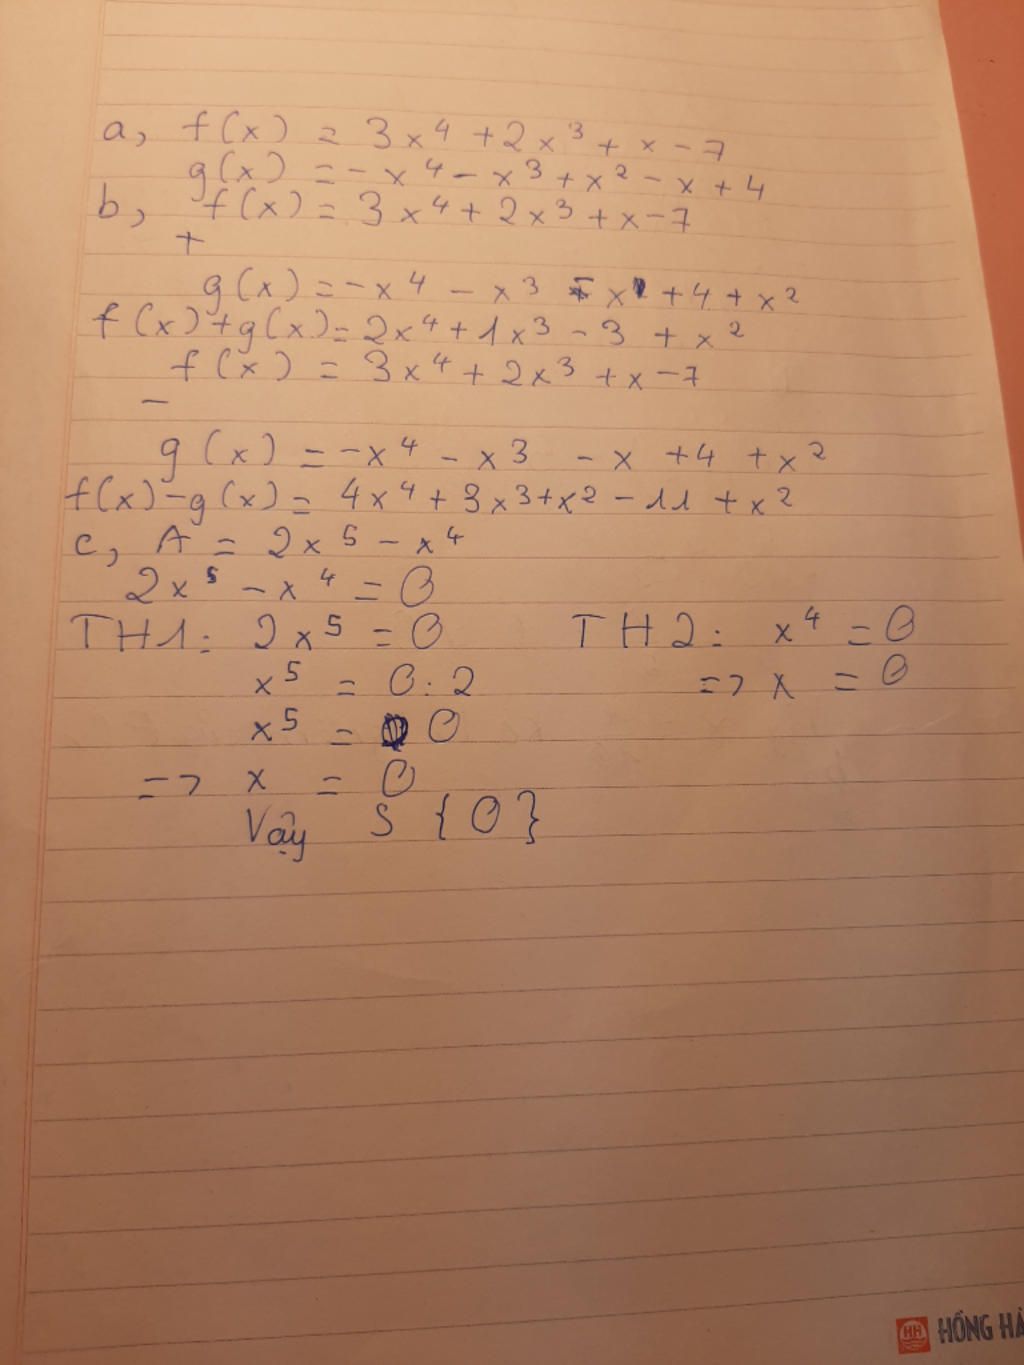 a, f(x) = 3x⁴ + 2x³ + x - 7
g(x) = - x⁴ - x³ + x² - x + 4
b, f(x) = 3x⁴ + 2x³ + x - 7
+
g(x) = -x⁴ - x³ - x + 4 + x²
f(x) + g(x) = 2x⁴ + 1x³ - 3 + x²
f(x) = 3x⁴ + 2x³ + x - 7
-
g(x) = -x⁴ - x³ - x + 4 + x²
f(x) - g(x) = 4x⁴ + 3x³ + x² - 11 + x²
c, A = 2x⁵ - x⁴
2x⁵ - x⁴ = 0
TH1: 2x⁵ = 0 TH2: x⁴ = 0
x⁵ = 0 : 2 => x = 0
x⁵ = 0
=> x = 0
Vậy S { 0 }
HH HỒNG HÀ